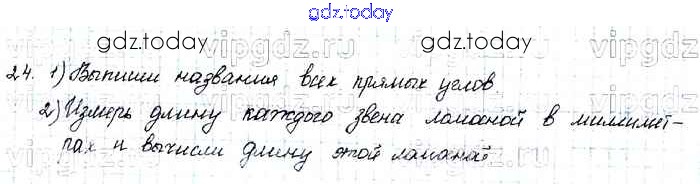 gdz.today
vipgdz.ru
gdz.today gdz.today
24. 1) Выпиши названия всех прямых углов.
2) Измерь длину каждого звена ломаной в миллимет-
рах и вычисли длину этой ломаной